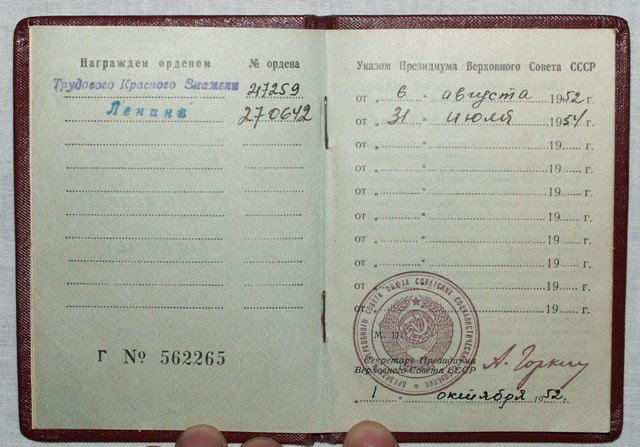 Награжден орденом № ордена
Трудового Красного Знамени 47259
Ленина 270642
Г № 562265
Указом Президиума Верховного Совета СССР
от „ 6 “ августа 1952 г.
от „ 31 “ июля 1954 г.
от „ “ 19 г.
от „ “ 19 г.
от „ “ 19 г.
от „ “ 19 г.
от „ “ 19 г.
от „ “ 19 г.
от „ “ 19 г.
от „ “ 19 г.
М. П.
Секретарь Президиума
Верховного Совета СССР А. Горкин
„ 1 “ октября 1952 г.
ПРЕЗИДИУМ ВЕРХОВНОГО СОВЕТА СОЮЗА СОВЕТСКИХ СОЦИАЛИСТИЧЕСКИХ РЕСПУБЛИК